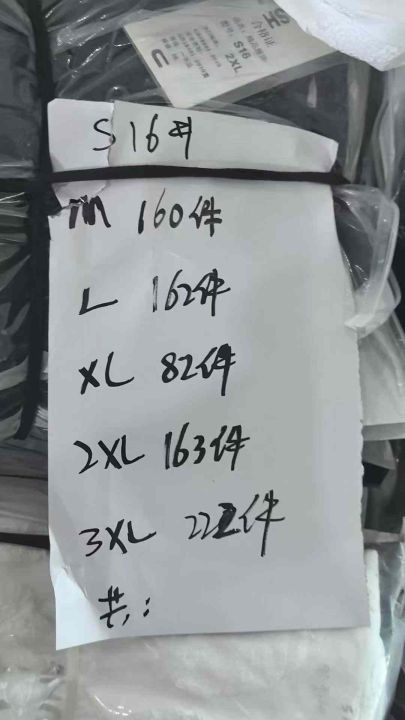 合格证
S16
2XL
S16#
M 160件
L 162件
XL 82件
2XL 163件
3XL 222件
共: